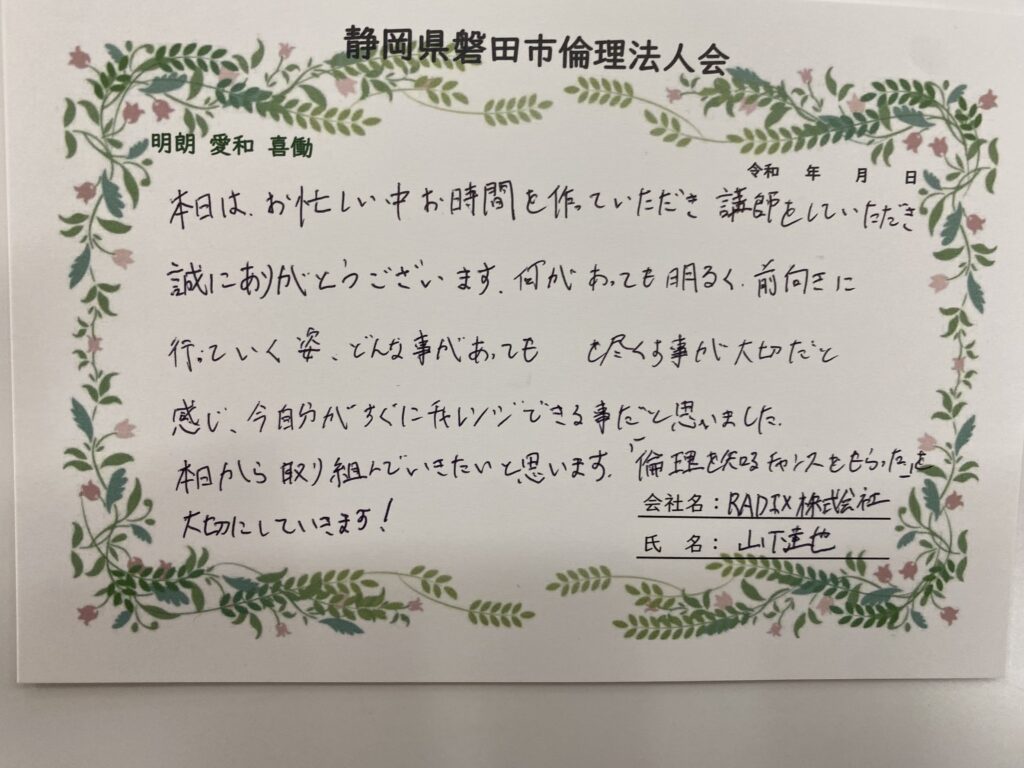 静岡県磐田市倫理法人会
明朗 愛和 喜働
令和 年 月 日
本日は、お忙しい中お時間を作っていただき 講師をしていただき
誠にありがとうございます。何があっても明るく、前向きに
行っていく姿、どんな事があっても も尽くす事が大切だと
感じ、今自分がすぐにチャレンジできる事だと思いました。
本日から取り組んでいきたいと思います。「倫理を知るチャンスをもらった」を
大切にしていきます!
会社名:RADIX株式会社
氏 名:山下達也